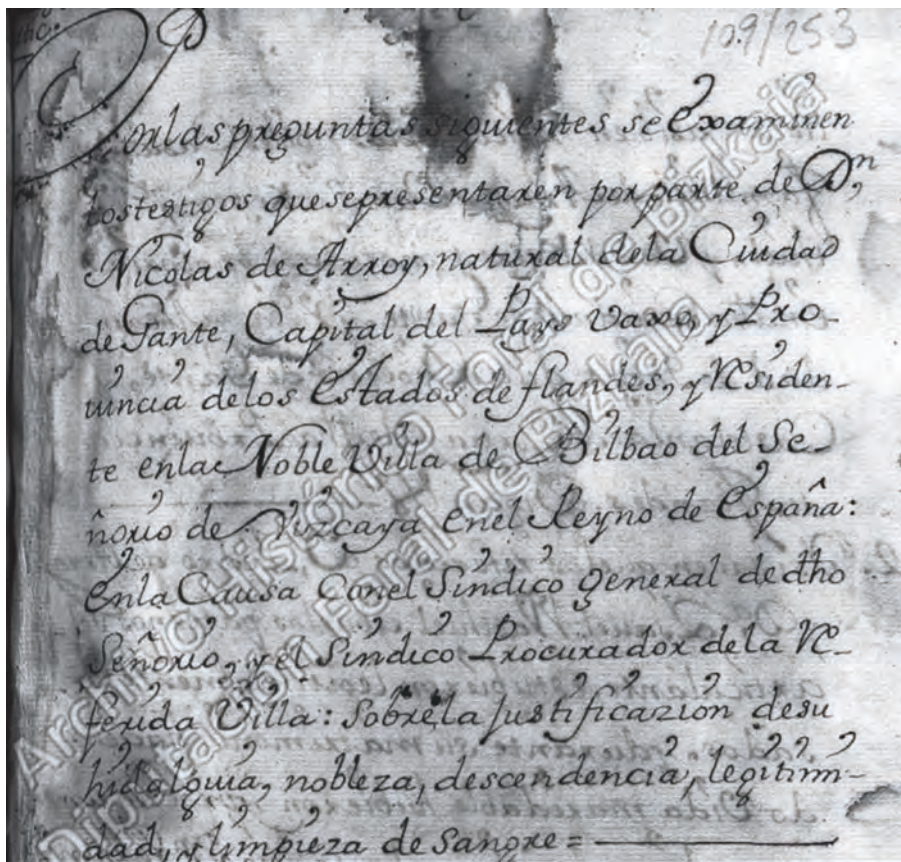 109/253
Por las preguntas siguientes se Examinen
los testigos que se presentaren por parte de Dn,
Nicolas de Arroy, natural dela Ciudad
de Gante, Capital del Pays vaxo, y Pro-
uincia delos Estados de flandes, y Residen-
te enla Noble Villa de Bilbao del Se-
ñorio de Vizcaya enel Reyno de España:
enla Causa Conel Sindico general de dho
Señorio, y el Sindico Procurador dela Re-
ferida Villa: Sobre la Justificazion desu
hidalguia, nobleza, descendencia, legitimi-
dad, y limpieza de Sangre =
Archivo Histórico Foral de Bizkaia
Diputación Foral de Bizkaia